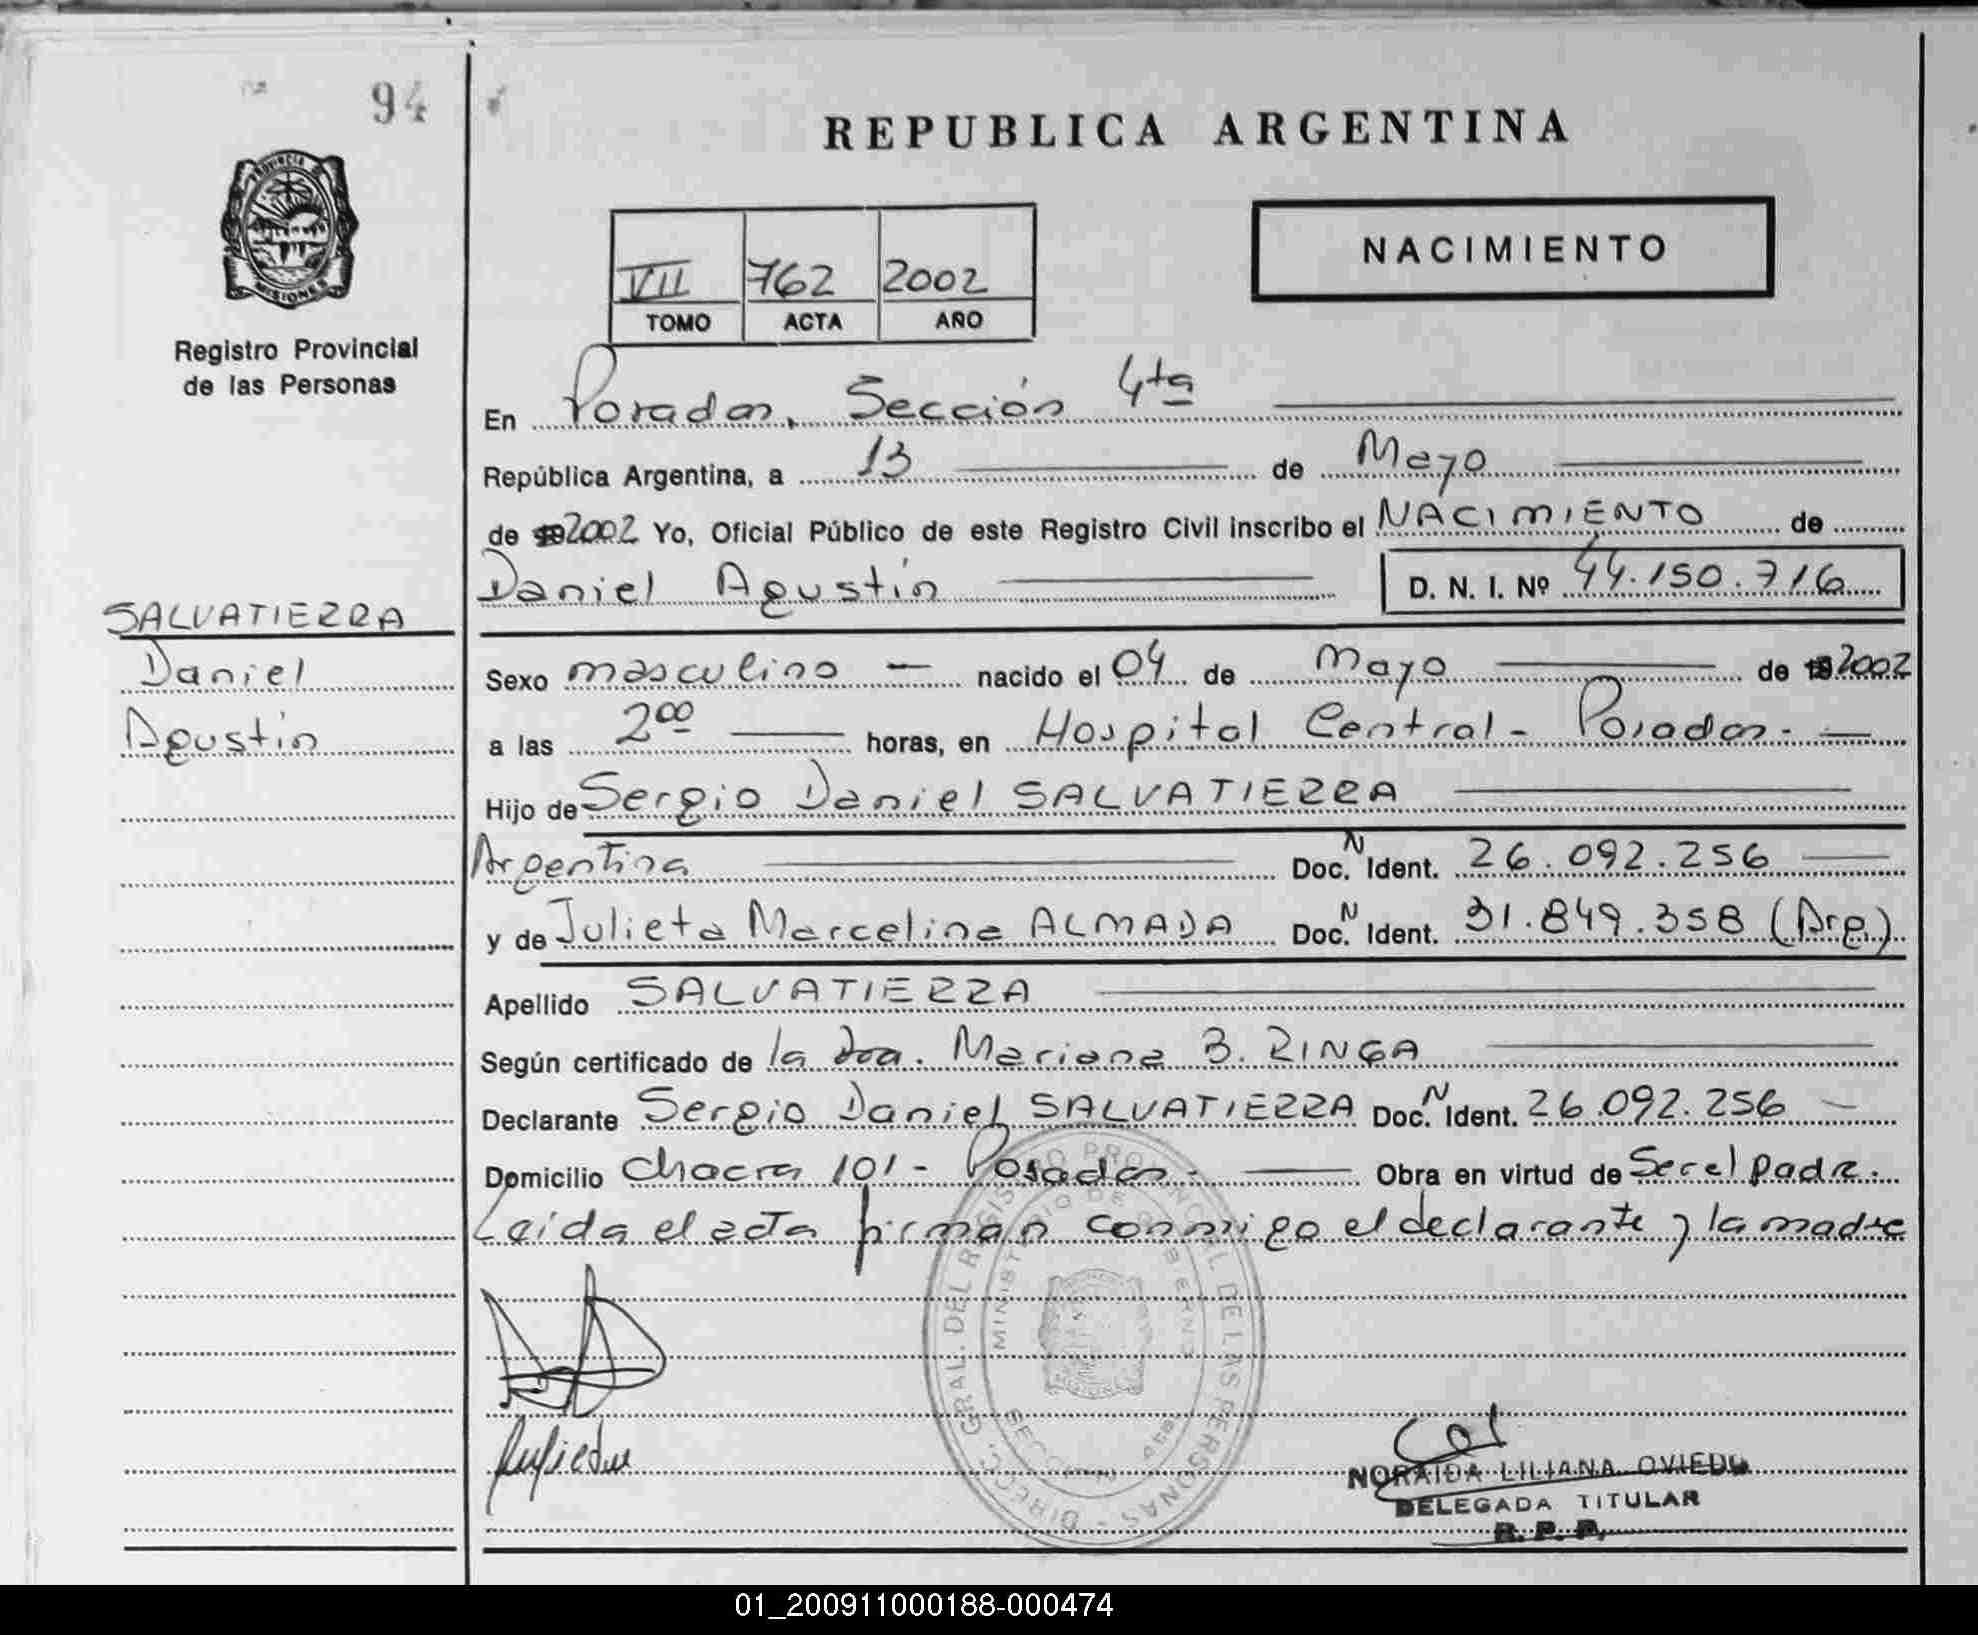 94
REPUBLICA ARGENTINA
PROVINCIA DE
MISIONES
Registro Provincial
de las Personas
NACIMIENTO
VII 762 2002
TOMO ACTA AÑO
En Posadas, Sección 4ta
República Argentina, a 13 de Mayo
de 192002 Yo, Oficial Público de este Registro Civil inscribo el NACIMIENTO de
Daniel Agustín D. N. I. Nº 44.150.716
SALVATIERRA
Daniel
Agustín
Sexo masculino — nacido el 04 de Mayo de 192002
a las 200 horas, en Hospital Central - Posadas. —
Hijo de Sergio Daniel SALVATIERRA
Argentina Doc. N Ident. 26.092.256
y de Julieta Marcelina ALMADA Doc. N Ident. 31.849.358 (Arg.)
Apellido SALVATIERRA
Según certificado de la Dra. Mariana B. RINGA
Declarante Sergio Daniel SALVATIERRA Doc. N Ident. 26.092.256 —
Domicilio Chacra 101 - Posadas. Obra en virtud de Ser el padre.
Leída el acta firman conmigo el declarante y la madre
DIRECC. GRAL. DEL REGISTRO PROVINCIAL DE LAS PERSONAS -
MINISTERIO DE GOBIERNO
SECCION 4ta
NORAIDA LILIANA OVIEDO
DELEGADA TITULAR
R. P. P.
01_200911000188-000474